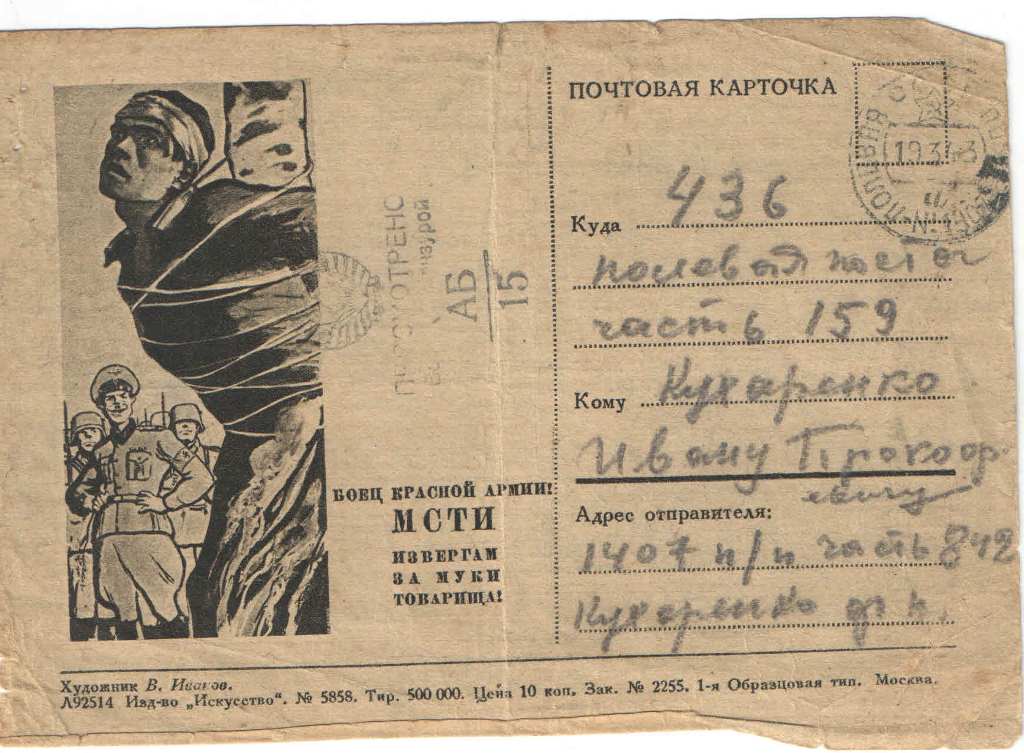 ПОЧТОВАЯ КАРТОЧКА
19 3 43
Куда 436
полевая почт
часть 159
Кому Кухаренко
Ивану Прокоф
евичу
Адрес отправителя:
1407 п/п часть 842
Кухаренко
ПРОСМОТРЕНО
АБ
15
БОЕЦ КРАСНОЙ АРМИИ!
МСТИ
ИЗВЕРГАМ
ЗА МУКИ
ТОВАРИЩА!
Художник В. Иванов.
Л92514 Изд-во „Искусство“. № 5858. Тир. 500 000. Цена 10 коп. Зак. № 2255. 1-я Образцовая тип. Москва.